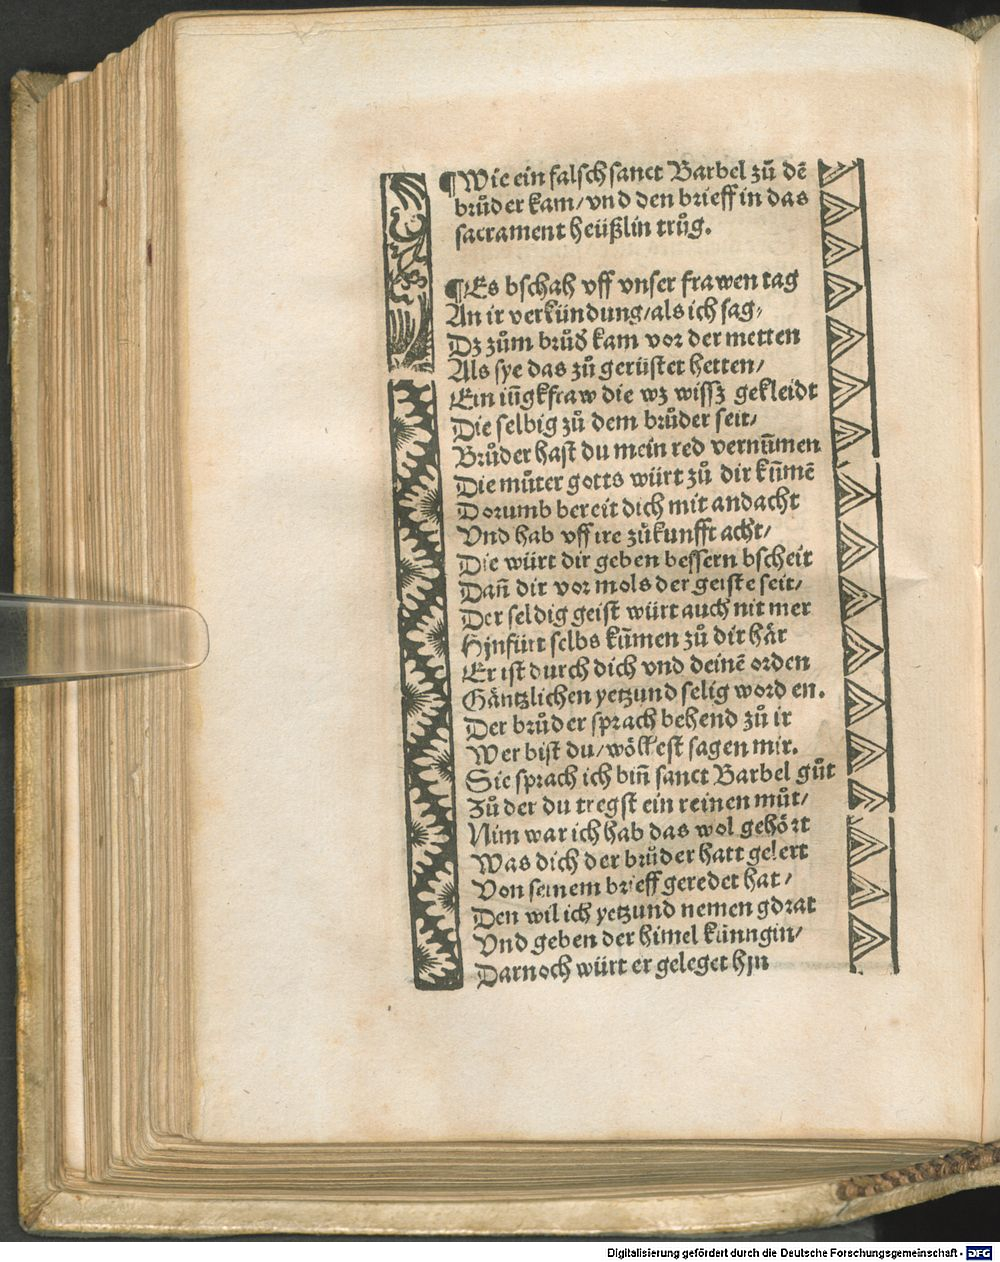 ¶Wie ein falsch sanct Barbel zů dē
brůder kam/ vnd den brieff in das
sacrament heüßlin trůg.
¶Es bschah vff vnser frawen tag
An ir verkündung/ als ich sag/
Dz zům brůd' kam vor der metten
Als sye das zů gerüstet hetten/
Ein iūgkfraw die wz wissz gekleidt
Die selbig zů dem brůder seit/
Brůder hast du mein red vernūmen
Die můter gotts würt zů dir kūmē
Dorumb bereit dich mit andacht
Vnd hab vff ire zůkunfft acht/
Die würt dir geben bessern bscheit
Dañ dir vor mols der geiste seit/
Der seldig geist würt auch nit mer
Hjnfürt selbs kūmen zů dir här
Er ist durch dich vnd deinē orden
Gäntzlichen yetzund selig word en.
Der brůder sprach behend zů ir
Wer bist du/ wöllest sagen mir.
Sie sprach ich biñ sanct Barbel gůt
Zů der du tregst ein reinen můt/
Nim war ich hab das wol gehört
Was dich der brůder hatt gelert
Von seinem brieff geredet hat/
Den wil ich yetzund nemen gdrat
Vnd geben der himel künngin/
Darnoch würt er geleget hjn
Digitalisierung gefördert durch die Deutsche Forschungsgemeinschaft - DFG